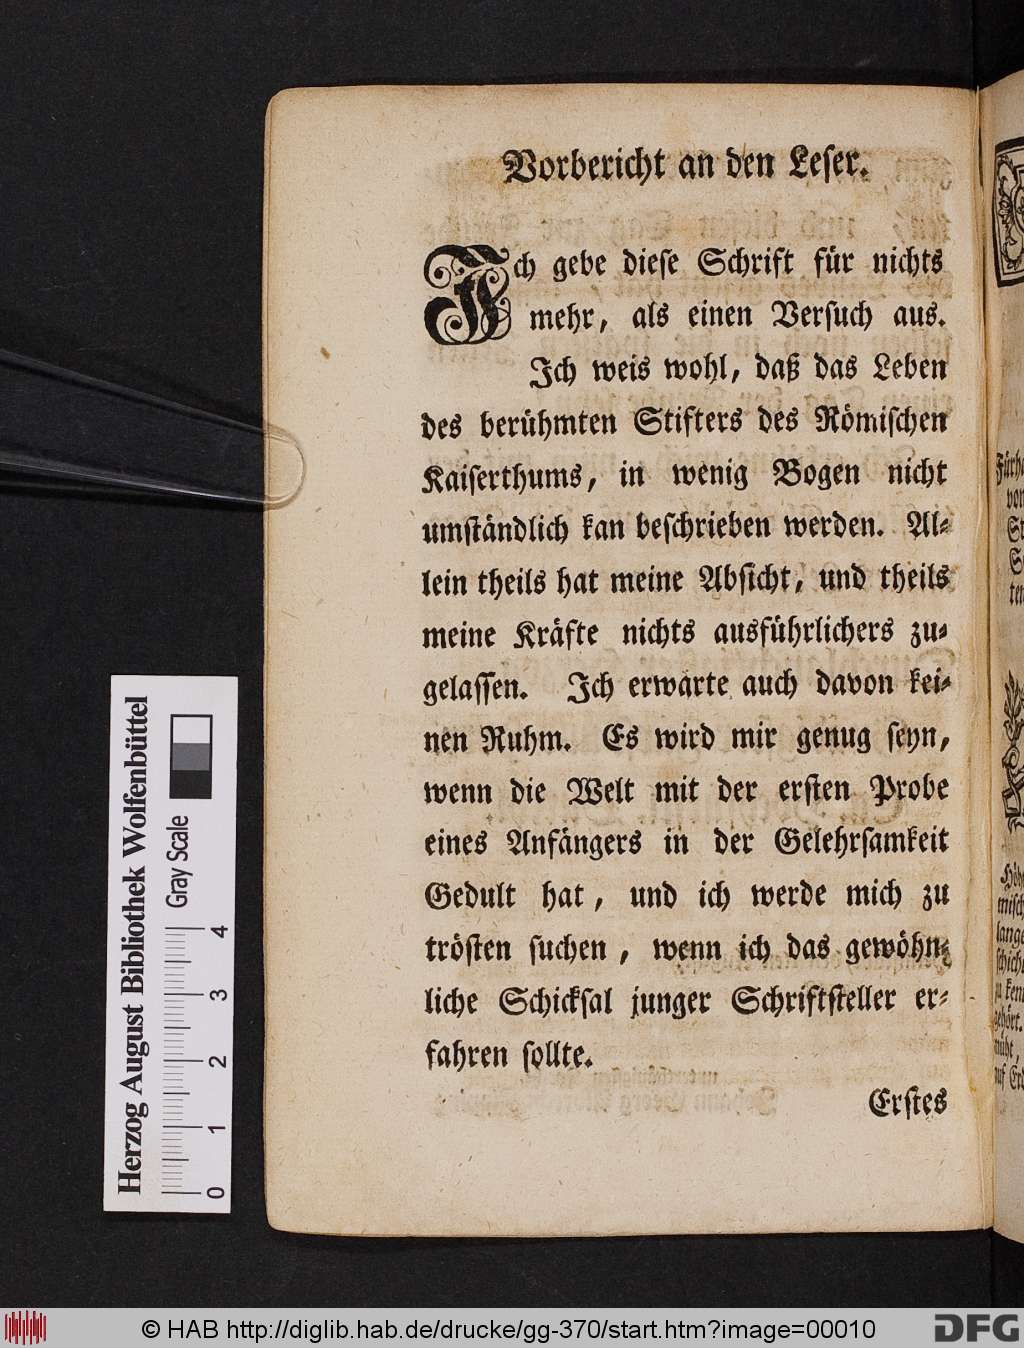 Vorbericht an den Leſer.
Ich gebe dieſe Schrift für nichts
mehr, als einen Verſuch aus.
Ich weis wohl, daß das Leben
des berühmten Stifters des Römiſchen
Kaiſerthums, in wenig Bogen nicht
umſtändlich kan beſchrieben werden. Al-
lein theils hat meine Abſicht, und theils
meine Kräfte nichts ausführlichers zu-
gelaſſen. Ich erwarte auch davon kei-
nen Ruhm. Es wird mir genug ſeyn,
wenn die Welt mit der erſten Probe
eines Anfängers in der Gelehrſamkeit
Gedult hat, und ich werde mich zu
tröſten ſuchen, wenn ich das gewöhn-
liche Schickſal junger Schriftſteller er-
fahren ſollte.
Erſtes
Herzog August Bibliothek Wolfenbüttel
Gray Scale
0 1 2 3 4
© HAB http://diglib.hab.de/drucke/gg-370/start.htm?image=00010
DFG